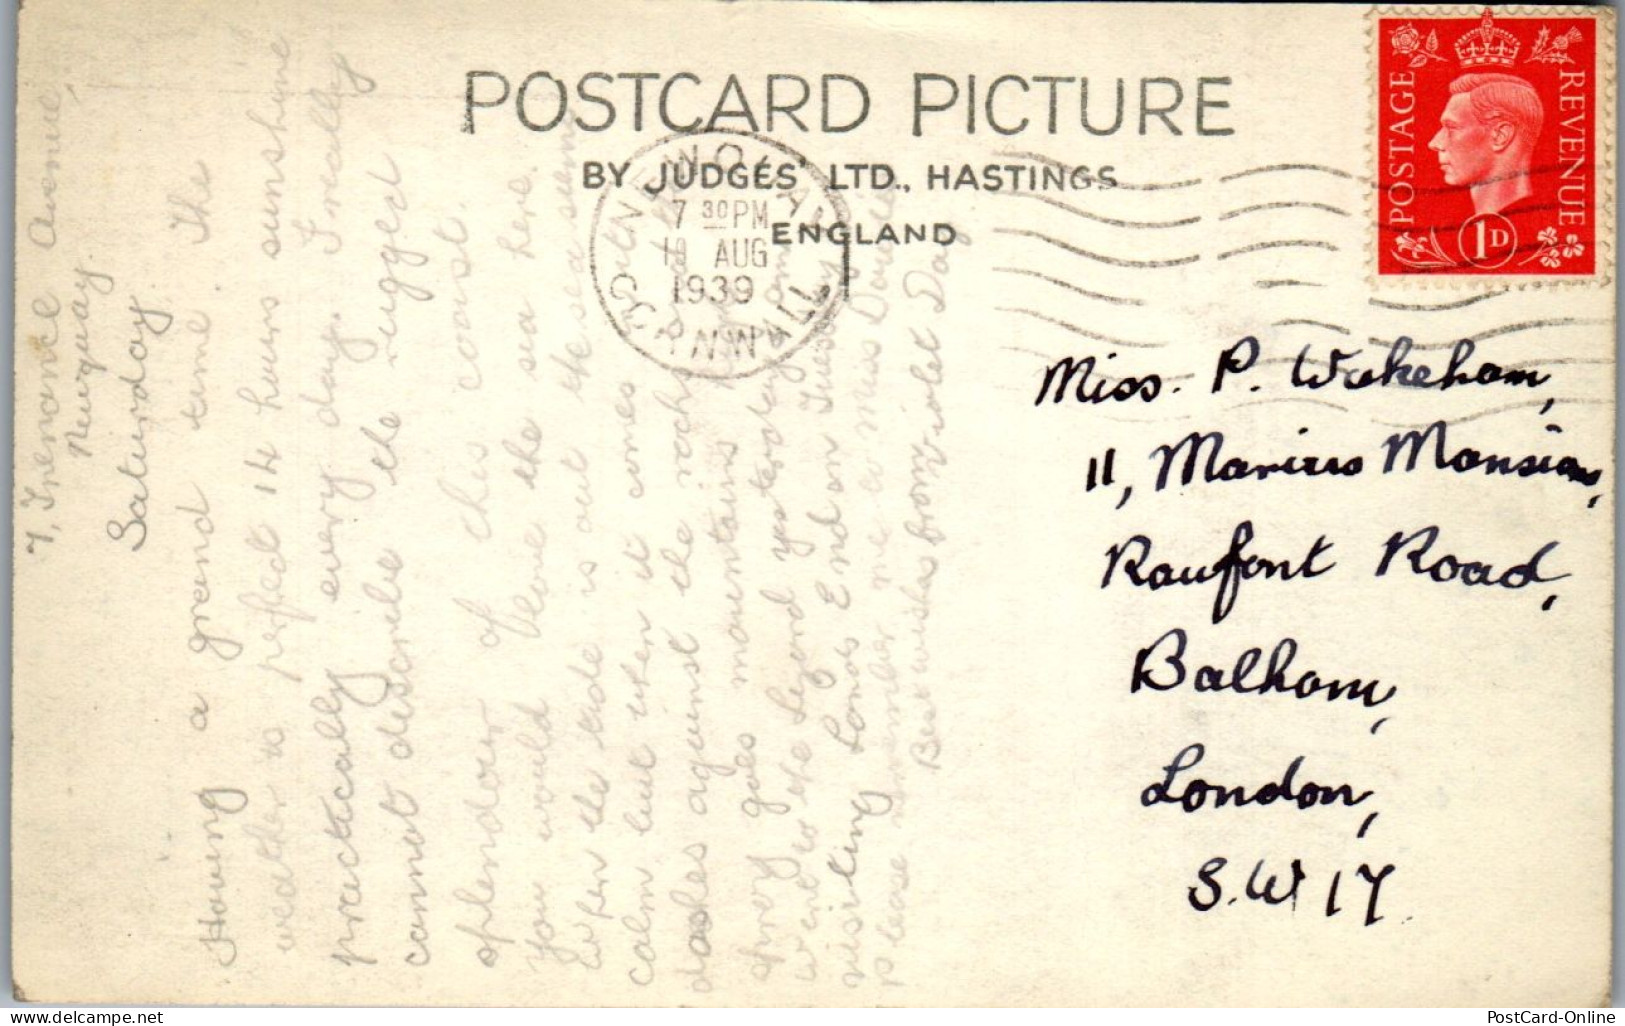 POSTCARD PICTURE
BY JUDGES' LTD., HASTINGS
ENGLAND
NEWQUAY
CORNWALL
7 30 PM
19 AUG
1939
POSTAGE
REVENUE
1D
7, Trenance Avenue,
Newquay.
Saturday.
Having a grand time. The
weather is perfect 14 hours sunshine
practically every day. I really
cannot describe the rugged
splendour of this coast.
You would love the sea here.
When the tide is out the sea seems
calm but when it comes in it
dashes against the rocks and the
spray goes mountains high
Went to the Legend yesterday am
visiting Lands End on Tuesday
Please remember me to Miss Davis
Best wishes from Violet Day
Miss. P. Wakeham,
11, Marius Mansions,
Rowfant Road,
Balham,
London,
S.W 17
PostCard-Here.com
PostCard-Online